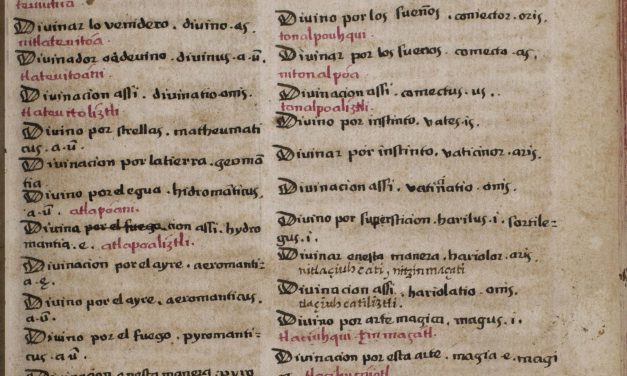 Divinar lo venidero. divino. as.
nitlateuitoa
Divinador o adevino. divinus. a. ū.
tlateuitoani.
Divinacion assi. divinatio. onis.
tlateuitoliztli
Divino por strellas. matheumati
cus. a. ū.
Divinacion por la tierra. geomā
tia
Divino por el egua. hidromaticus.
a. ū. atlapoani.
Divina por el fuego cion assi. hydro
mantia. e. atlapoaliztli.
Divinacion por el ayre. aeromanti-
a. ę.
Divino por el ayre. aeromanticus.
a. ū.
Divino por el fuego. pyromanti-
cus. a. ū.
Divinacion enesta manera. pyro
Divino por los sueños. coniector. oris.
tonalpouhqui.
Divinar por los sueños. comecto. as.
nitonalpoa
Divinacion assi. comectus. us.
tonalpoaliztli.
Divino por instinto. vates. is.
Divinar por instinto. vaticinor. aris.
Divinacion assi. vaticinatio. onis.
Divino por supersticion. harilus. i. sortile-
gus. i.
Divinar enesta manera. hariolor. aris.
nitlaçiuhcati, nitzinmaçati
Divinacion assi. hariolatio. onis.
tlaçiuhcatiliztli.
Divino por arte magica. magus. i.
tlaciuhqui. tzinmaçatl.
Divinacion por esta arte. magia. e. magi